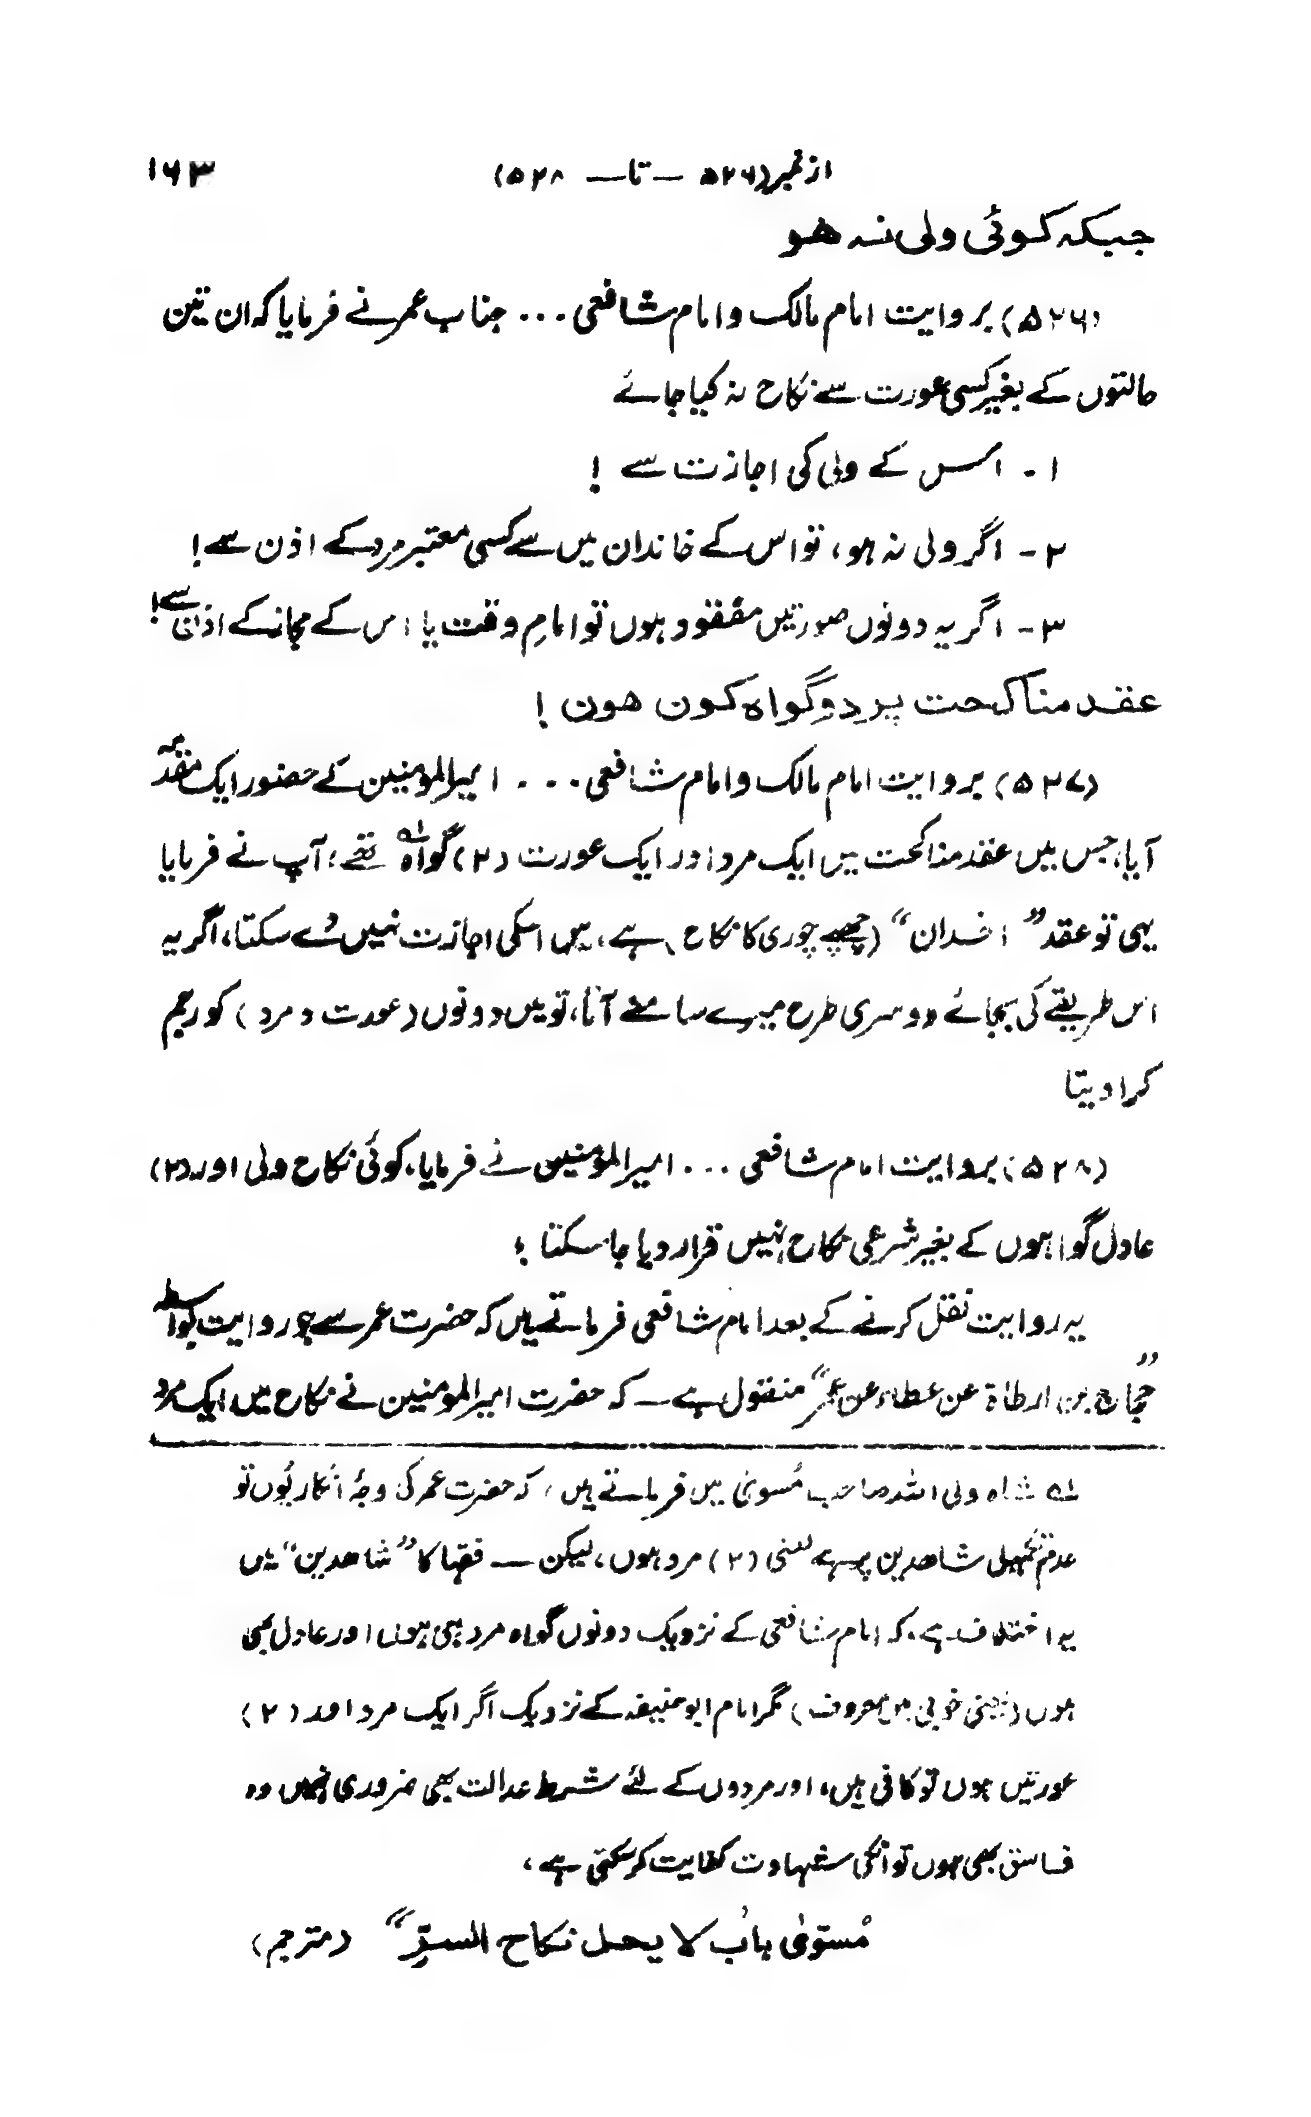 از نمبر (۵۲۶ — تا — ۵۲۸) ۱۶۳
جبکہ کوئی ولی نہ ہو
(۵۲۶) بروایت امام مالک و امام شافعی ... جناب عمر نے فرمایا کہ ان تین
حالتوں کے بغیر کسی عورت سے نکاح نہ کیا جائے
۱ - اس کے ولی کی اجازت سے !
۲ - اگر ولی نہ ہو، تو اس کے خاندان میں سے کسی معتبر مرد کے اذن سے !
۳ - اگر یہ دونوں صورتیں مفقود ہوں تو امامِ وقت یا اس کے مجاز کے اذن سے !
عقد مناکحت پر دو گواہ کون ہوں !
(۵۲۷) بروایت امام مالک و امام شافعی ... امیر المومنین کے حضور ایک مقدمہ
آیا، جس میں عقد مناکحت میں ایک مرد اور ایک عورت (۲) گواہ لہ تھے ؛ آپ نے فرمایا
یہی تو عقد ”اخدان“ (چھپے چوری کا نکاح) ہے، میں اسکی اجازت نہیں دے سکتا، اگر یہ
اس طریقے کی بجائے دوسری طرح میرے سامنے آتا، تو میں دونوں (عورت و مرد) کو رجم
کرا دیتا
(۵۲۸) بروایت امام شافعی ... امیر المؤمنین نے فرمایا، کوئی نکاح ولی اور (۲)
عادل گواہوں کے بغیر شرعی نکاح نہیں قرار دیا جا سکتا ؛
یہ روایت نقل کرنے کے بعد امام شافعی فرماتے ہیں کہ حضرت عمر سے جو روایت بواسطہ
”حجاج بن ارطاۃ عن عطاء عن عمر“ منقول ہے — کہ حضرت امیر المومنین نے نکاح میں ایک مرد
لہ شاہ ولی اللہ صاحب مُسویٰ میں فرماتے ہیں، کہ حضرت عمر کی وجۂ انکار یُوں تو
عدم تکمیل شاھدین پر ہے یعنی (۲) مرد ہوں، لیکن — فقہا کا ”شاھدین“ میں
یہ اختلاف ہے، کہ امام شافعی کے نزدیک دونوں گواہ مرد ہی ہوں اور عادل بھی
ہوں (یعنی خوبی میں معروف) مگر امام ابو حنیفہ کے نزدیک اگر ایک مرد اور (۲)
عورتیں ہوں تو کافی ہیں، اور مردوں کے لئے شرط عدالت بھی ضروری نہیں وہ
فاسق بھی ہوں تو انکی شہادت کفایت کر سکتی ہے،
مُسوّیٰ باب لا یحل نکاح السرّ“ (مترجم)